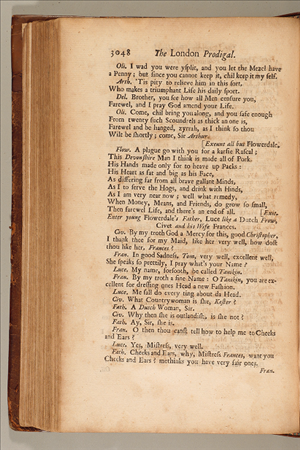 3048 The London Prodigal.
Oli. I wad you were ysplit, and you let the Mezel have
a Penny; but since you cannot keep it, chil keep it my self.
Arth. 'Tis pity to relieve him in this sort,
Who makes a triumphant Life his daily sport.
Del. Brother, you see how all Men censure you,
Farewel, and I pray God amend your Life.
Oli. Come, chil bring you along, and you safe enough
From twenty such Scoundrels as thick an one is,
Farewel and be hanged, zyrrah, as I think so thou
Wilt be shortly; come, Sir Arthur.
[Exeunt all but Flowerdale.
Flow. A plague go with you for a karsie Rascal;
This Devonshire Man I think is made all of Pork.
His Hands made only for to heave up Packs:
His Heart as fat and big as his Face,
As differing far from all brave gallant Minds,
As I to serve the Hogs, and drink with Hinds,
As I am very near now; well what remedy,
When Money, Means, and Friends, do grow so small,
Then farewel Life, and there's an end of all. [Exit.
Enter young Flowerdale's Father, Luce like a Dutch Frow,
Civet and his Wife Frances.
Civ. By my troth God a Mercy for this, good Christopher,
I thank thee for my Maid, I like her very well, how dost
thou like her, Frances?
Fran. In good Sadness, Tom, very well, excellent well,
She speaks so prettily, I pray what's your Name?
Luce. My name, forsooth, be called Tanikin.
Fran. By my troth a fine Name: O Tanikin, you are ex-
cellent for dressing ones Head a new Fashion.
Luce. Me sall do every ting about da Head.
Civ. What Countrywoman is she, Kester?
Fath. A Dutch Woman, Sir.
Civ. Why then she is outlandish, is she not?
Fath. Ay, Sir, she is.
Fran. O then thou canst tell how to help me to Cheeks
and Ears?
Luce. Yes, Mistress, very well.
Fath. Cheeks and Ears, why, Mistress Frances, want you
Cheeks and Ears? methinks you have very fair ones.
Fran.